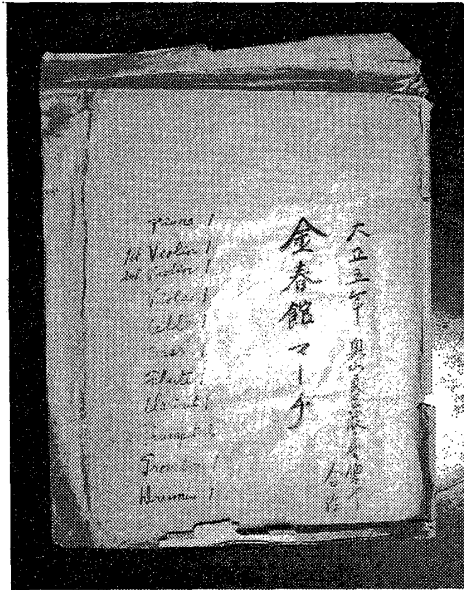 大正五年 奥山
合作
金春館マーチ
Piano 1
1st Violin 1
2nd Violin 1
Viola 1
Cello 1
Bass 1
Flute 1
Clarinet 1
Trumpet
Trombone 1
Drums 1